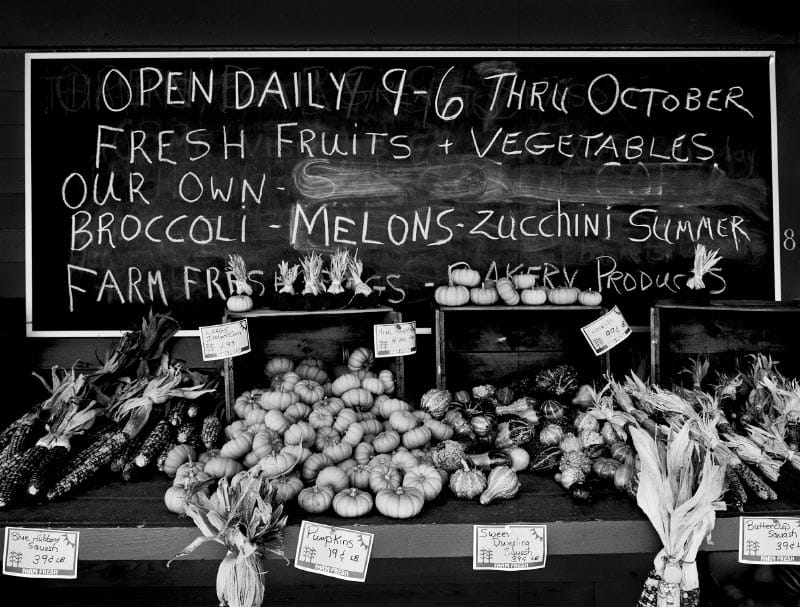 OPEN DAILY 9-6 THRU OCTOBER
FRESH FRUITS + VEGETABLES
OUR OWN -
BROCCOLI - MELONS - ZUCCHINI SUMMER
FARM FRESH EGGS - BAKERY PRODUCTS
8
LARGE
Indian Corn
99¢
Blue Hubbard
Squash
39¢ LB
FARM FRESH
Pumpkins
19¢ LB
FARM FRESH
Sweet
Dumpling
Squash
39¢ LB
FARM FRESH
Buttercup
Squash
39¢
FARM FRESH